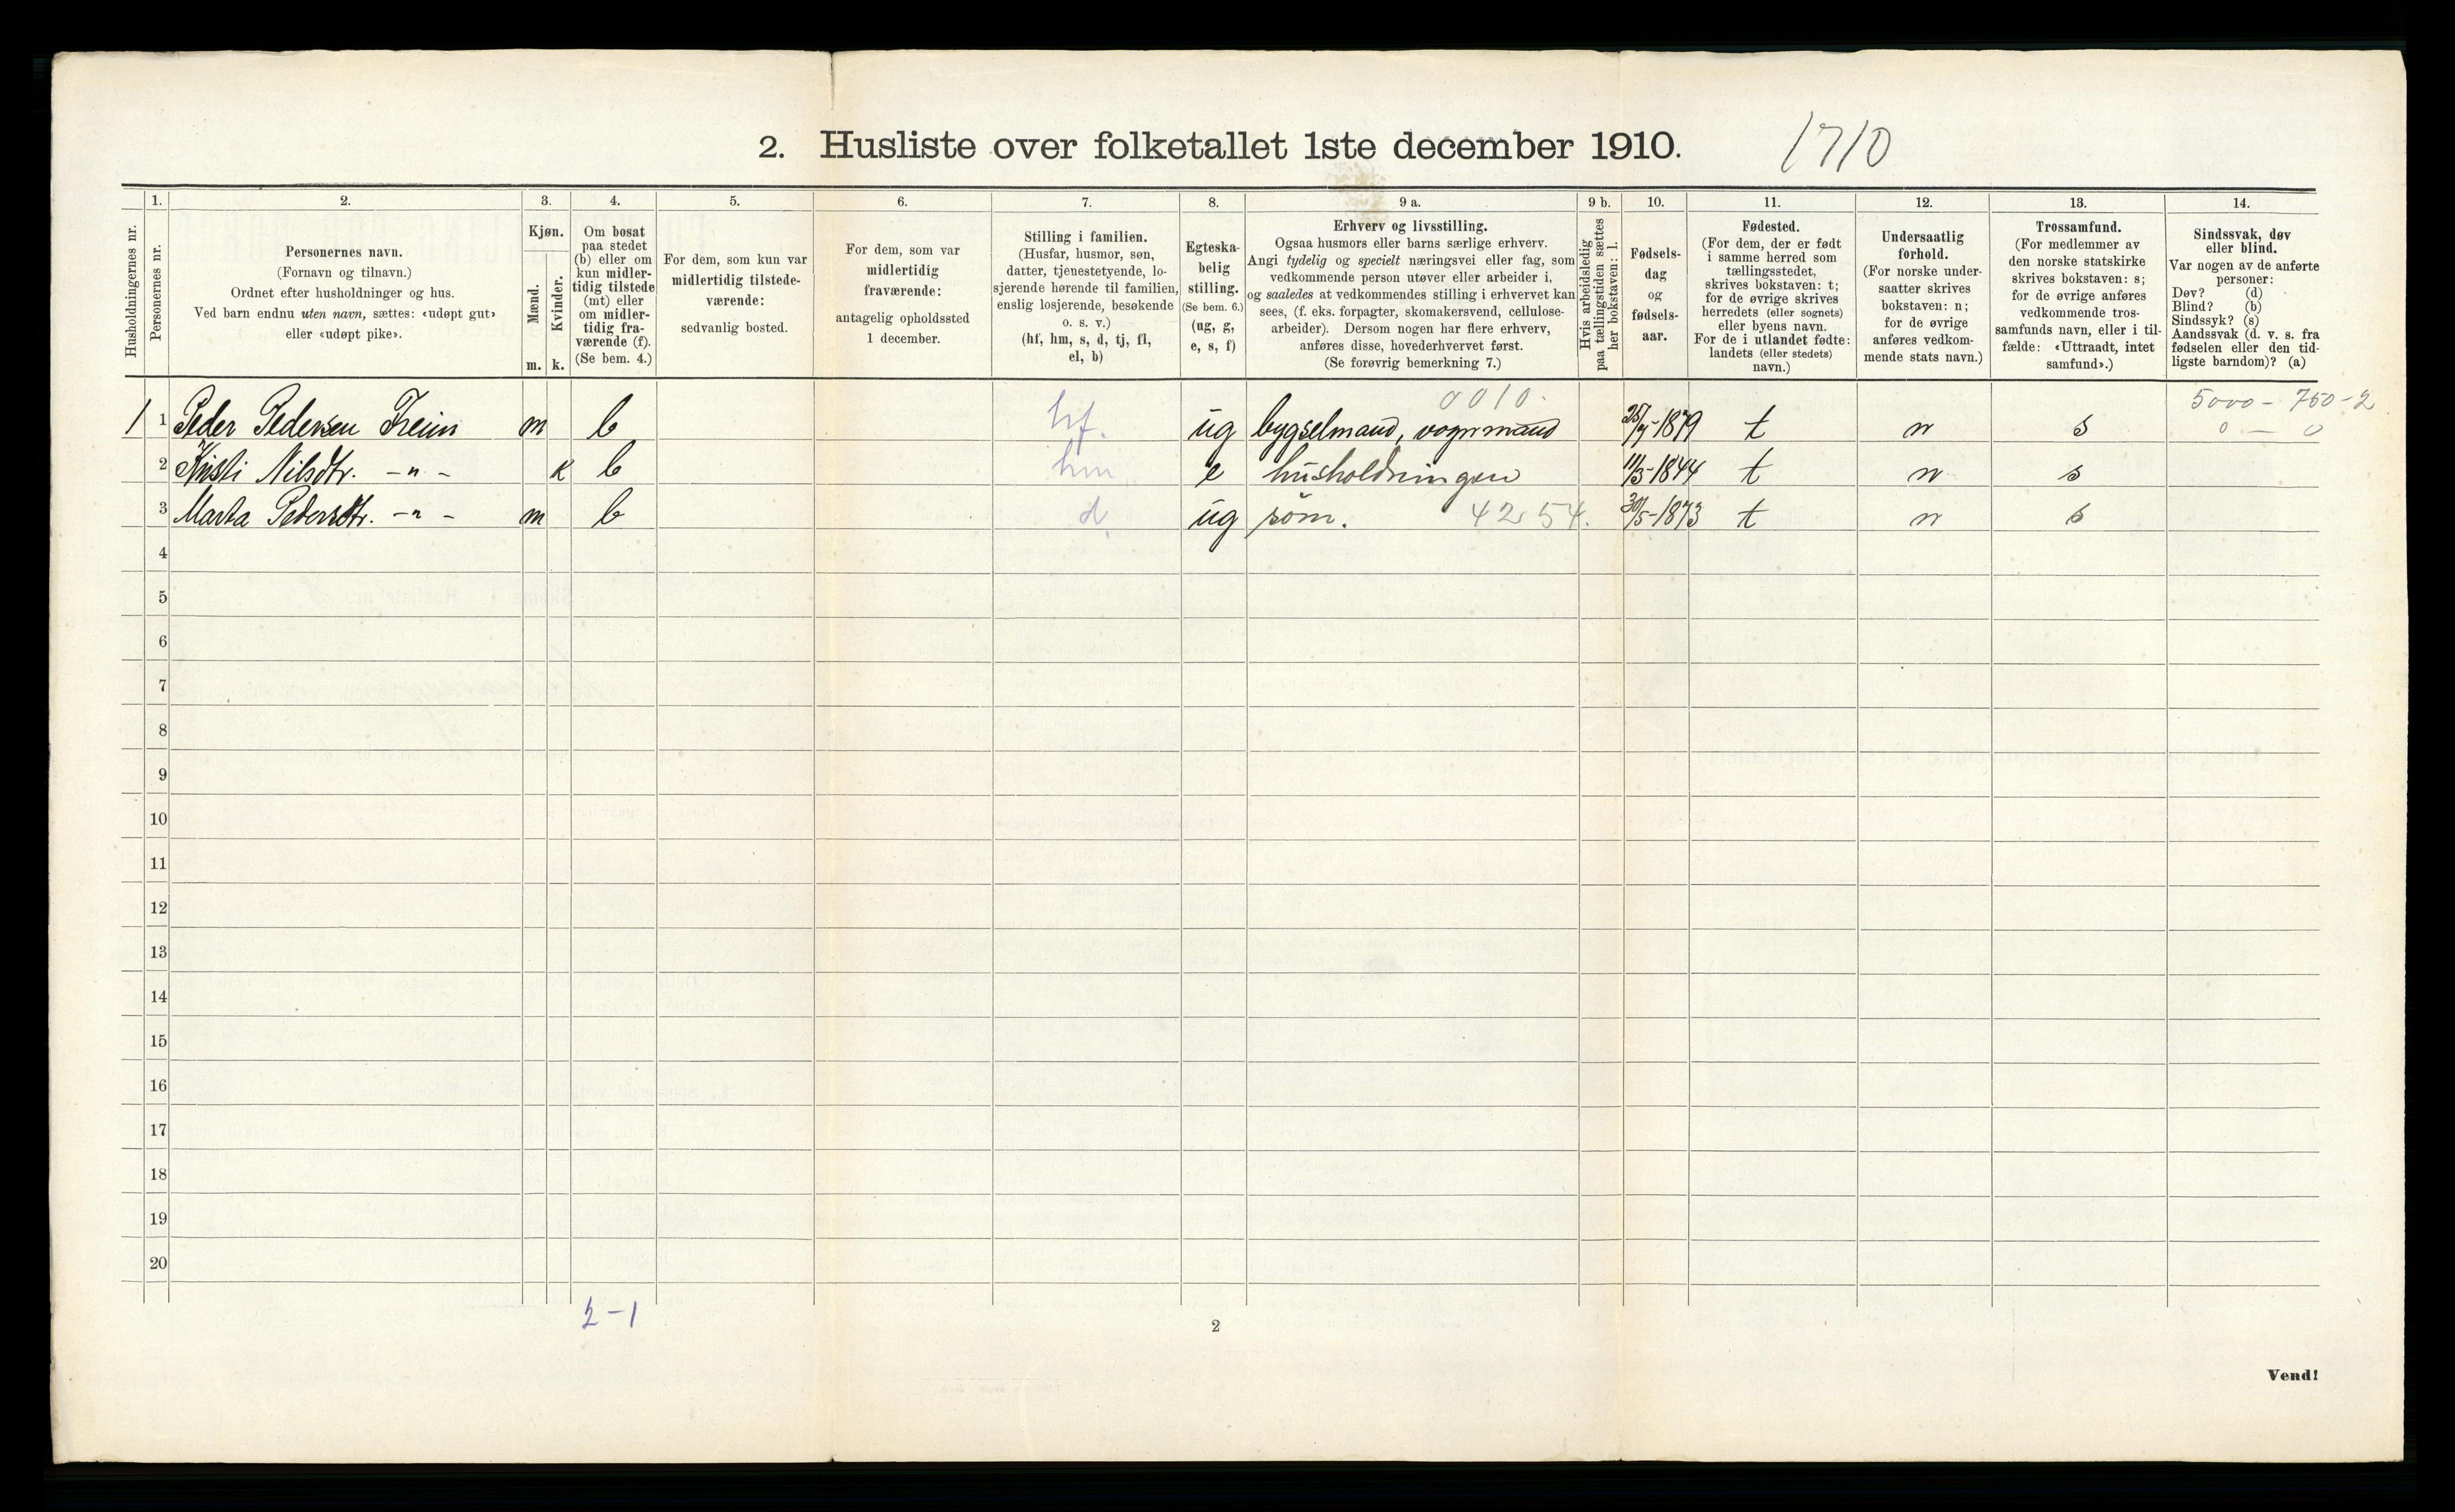 2. Husliste over folketallet 1ste december 1910. 1710
1. 2. 3. 4. 5. 6. 7. 8. 9 a. 9 b. 10. 11. 12. 13. 14.
Husholdningernes nr.
Personernes nr.
Personernes navn.
(Fornavn og tilnavn.)
Ordnet efter husholdninger og hus.
Ved barn endnu uten navn, sættes: «udøpt gut»
eller «udøpt pike».
Kjøn.
Mænd.
Kvinder.
m. k.
Om bosat
paa stedet
(b) eller om
kun midler-
tidig tilstede
(mt) eller
om midler-
tidig fra-
værende (f).
(Se bem. 4.)
For dem, som kun var
midlertidig tilstede-
værende:
sedvanlig bosted.
For dem, som var
midlertidig
fraværende:
antagelig opholdssted
1 december.
Stilling i familien.
(Husfar, husmor, søn,
datter, tjenestetyende, lo-
sjerende hørende til familien,
enslig losjerende, besøkende
o. s. v.)
(hf, hm, s, d, tj, fl,
el, b)
Egteska-
belig
stilling.
(Se bem. 6.)
(ug, g,
e, s, f)
Erhverv og livsstilling.
Ogsaa husmors eller barns særlige erhverv.
Angi tydelig og specielt næringsvei eller fag, som
vedkommende person utøver eller arbeider i,
og saaledes at vedkommendes stilling i erhvervet kan
sees, (f. eks. forpagter, skomakersvend, cellulose-
arbeider). Dersom nogen har flere erhverv,
anføres disse, hovederhvervet først.
(Se forøvrig bemerkning 7.)
Hvis arbeidsledig
paa tællingstiden sættes
her bokstaven: l.
Fødsels-
dag
og
fødsels-
aar.
Fødested.
(For dem, der er født
i samme herred som
tællingsstedet,
skrives bokstaven: t;
for de øvrige skrives
herredets (eller sognets)
eller byens navn.
For de i utlandet fødte:
landets (eller stedets)
navn.)
Undersaatlig
forhold.
(For norske under-
saatter skrives
bokstaven: n;
for de øvrige
anføres vedkom-
mende stats navn.)
Trossamfund.
(For medlemmer av
den norske statskirke
skrives bokstaven: s;
for de øvrige anføres
vedkommende tros-
samfunds navn, eller i til-
fælde: «Uttraadt, intet
samfund».)
Sindssvak, døv
eller blind.
Var nogen av de anførte
personer:
Døv? (d)
Blind? (b)
Sindssyk? (s)
Aandssvak (d. v. s. fra
fødselen eller den tid-
ligste barndom)? (a)
0010. 5000 - 750-2
1 1 Peder Pedersen m b hf. ug bygselmand, vognmand 1879 t n s 0 — 0
2 Kristi Nilsdtr. -"- k b hm e husholdningen 11/3-1844 t n s
3 Marta Pedersdtr. -"- m b d ug søm. 4254. 30/5-1873 t n s
4
5
6
7
8
9
10
11
12
13
14
15
16
17
18
19
20
2-1
2
Vend!